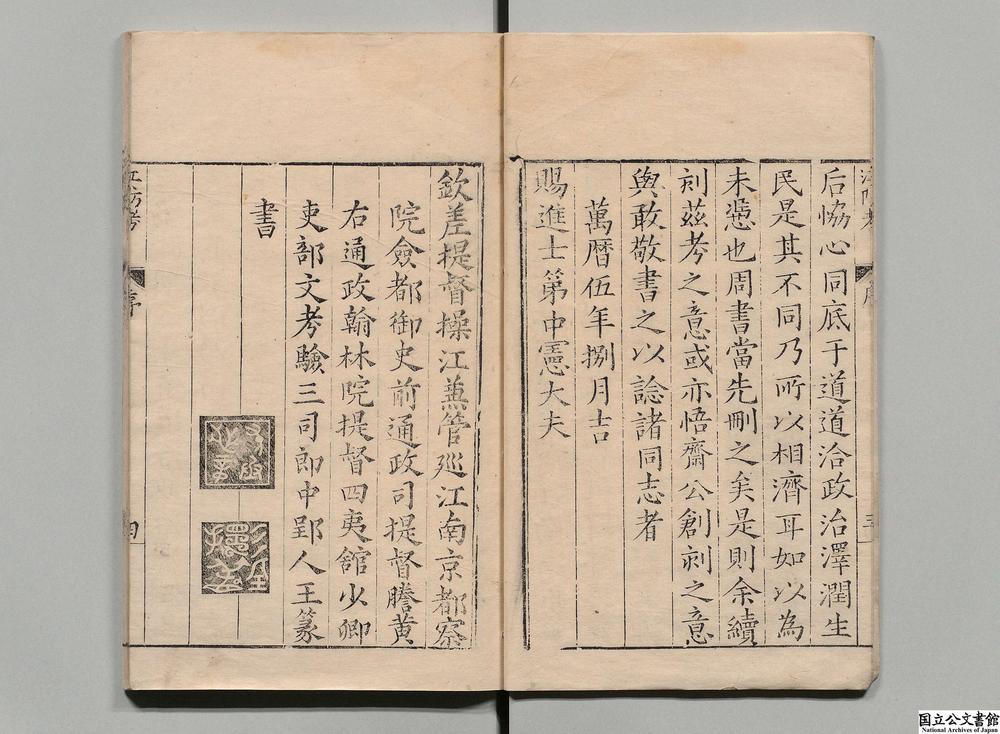 后恊心同底于道道洽政治澤潤生
民是其不同乃所以相濟耳如以為
未愻也周書當先刪之矣是則余續
刻茲考之意或亦悟齋公創刻之意
與敢敬書之以諗諸同志者
萬曆伍年捌月吉
賜進士第中憲大夫
欽差提督操江蕪管廵江南京都察
院僉都御史前通政司提督謄黄
右通政翰林院提督四夷舘少卿
吏部文考驗三司郎中郢人王篆
書
江防考
序
四
国立公文書館
National Archives of Japan